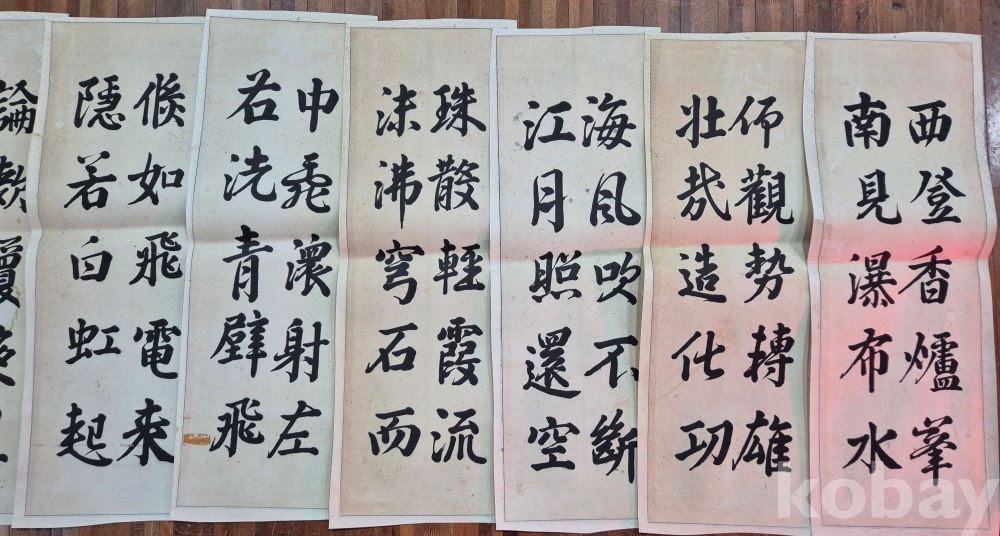 西登香爐峯
南見瀑布水
仰觀勢轉雄
壯哉造化功
海風吹不斷
江月照還空
珠散輕霞流
沫沸穹石而
中亂潨射左
右洗青壁飛
倏如飛電来
隱若白虹起
論
kobay